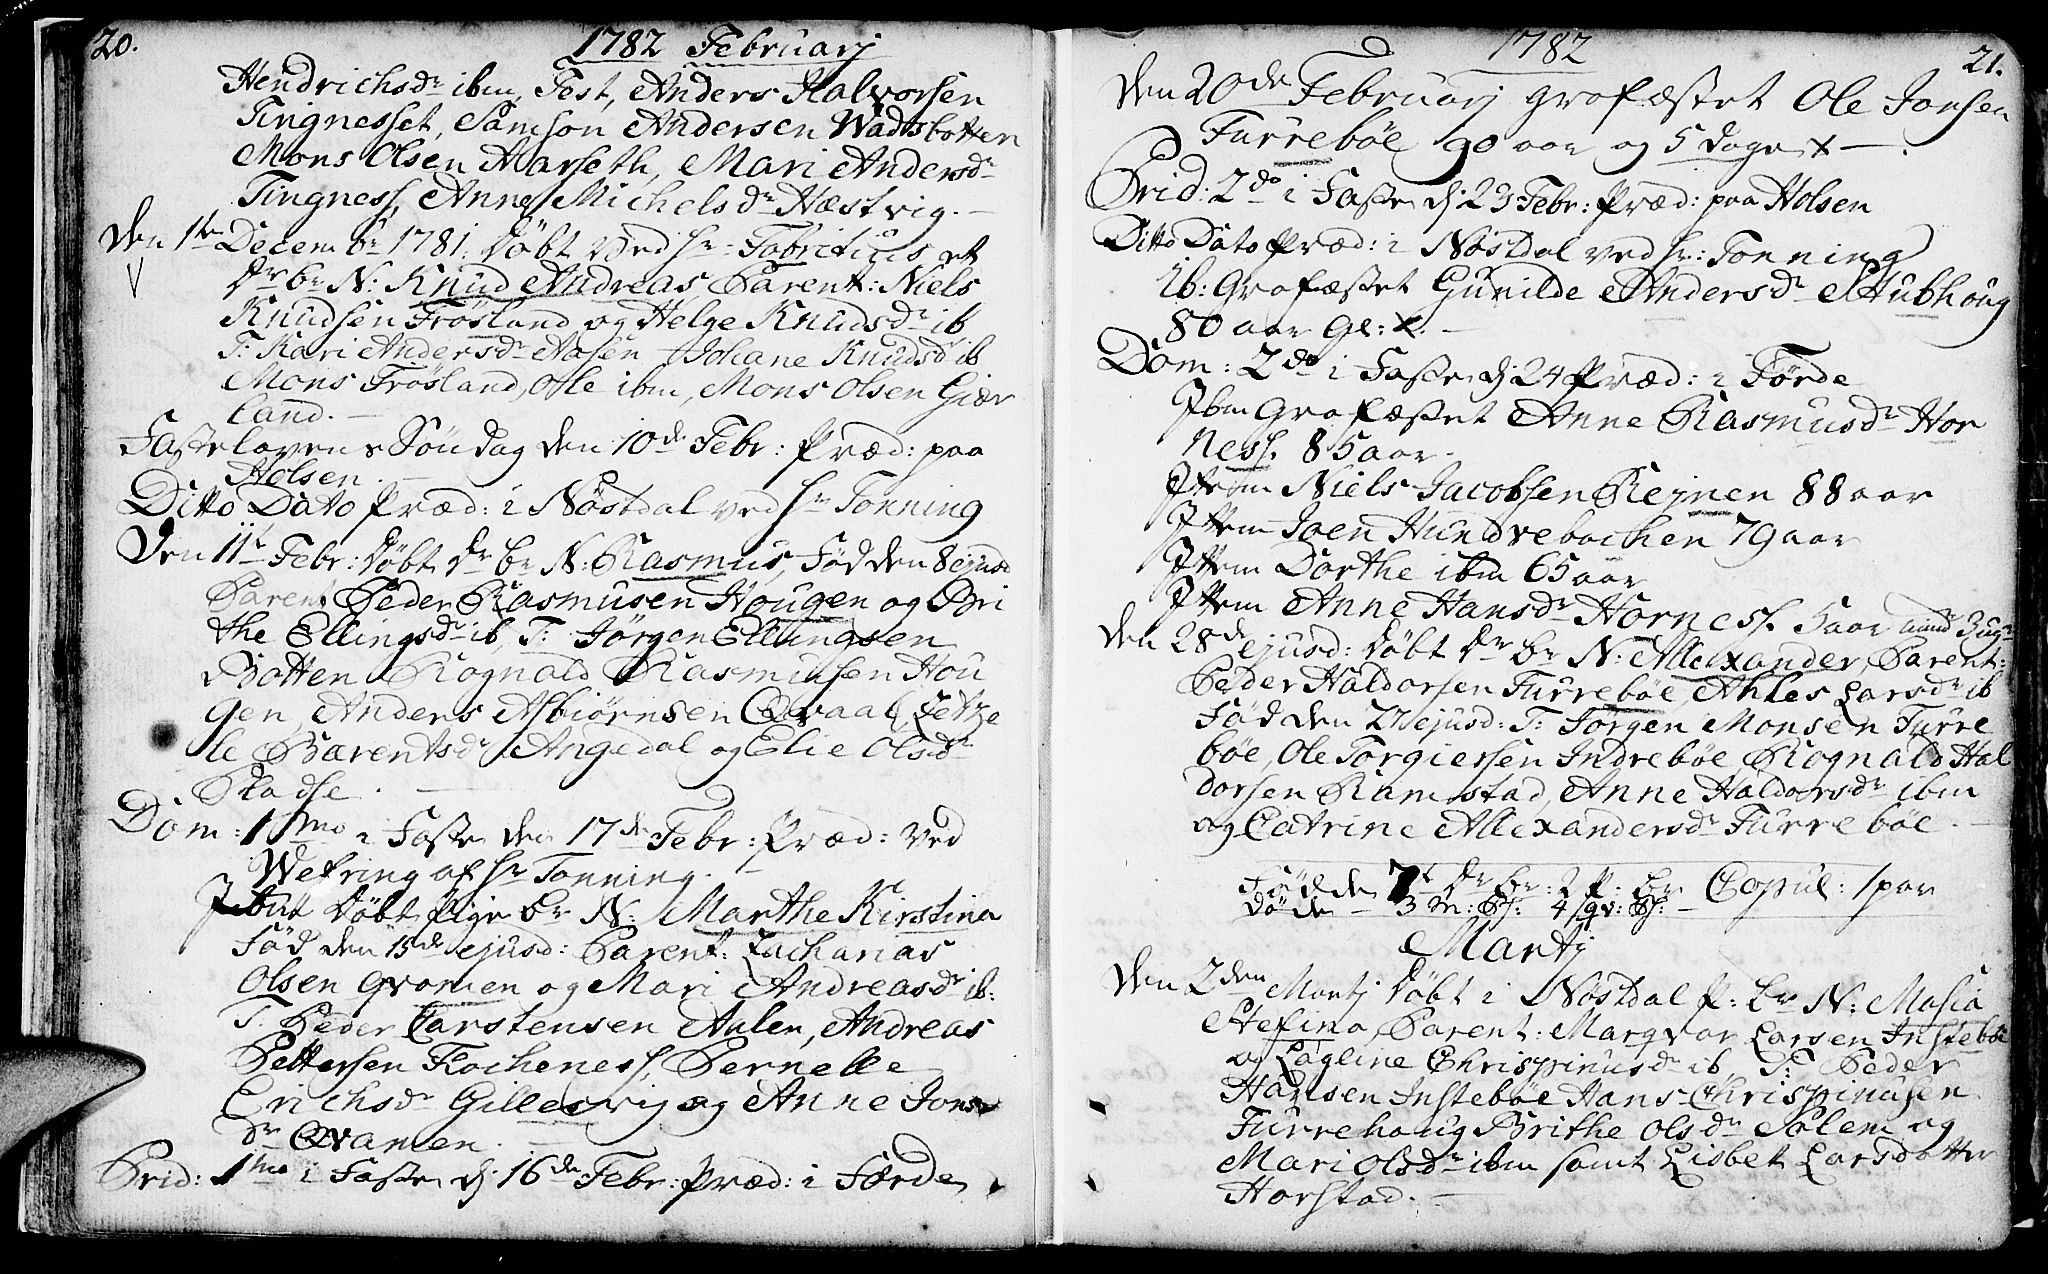 20.
1782 Februarj
Hendrichsdr ibm, Test, Anders Halvorsen
Tingnesset, Samson Andersen Wadsbotten
Mons Olsen Harseth, Mari Andersdr
Tingness, Anne Michelsdr Hæstvig. —
Den 1te Decembr 1781. Döbt ved Hr: Fabritius et
Dr br N: Knud Andreas, Parent: Niels
Knudsen Frösland og Helge Knudsdr ib
T: Kari Andersdr Aasen Johane Knudsdr ib
Mons Frösland, Ole ibm, Mons Olsen Giær
land. —
Fastelavens Söndag den 10de Febr: Præd: paa
Holsen. —
Ditto Dato Præd: i Nöstdal ved Hr Tonning
Den 11t Febr: Döbt Dr br N: Rasmus, Föd den 8 ejusd
Parent Peder Rasmusen Hougen og Bri
the Ellingsdr ib, T: Jörgen Ellingsen
Botten Rognald Rasmusen Hou
gen, Anders Asbiörnsen Qvaal,
le Bærentsdr Angedal og Elie Olsdr
Skadse. —
Dom: 1mo i Faste den 17de Febr: Præd: ved
Wefring af Hr Tonning. —
Döbt Pige br N: Marthe Kirstina
Föd den 15de ejusd: Parent: Zacharias
Olsen Qvamen og Mari Andreasdr ib:
T: Peder Carstensen Aalen, Andreas
Pettersen Flochenes, Pernelle
Erichsdr Gillesvig og Anne Jons
dr Qvamen. —
Prid: 1mo i Faste dj 16de Febr: Præd: i Førde
1782
21.
Den 20de Februarj grafæstet Ole Jonsen
Furreböe 90 aar og 5 dage x — .
Prid: 2do i Faste dj 23 Febr: Præd: paa Holsen
Ditto Dato Præd: i Nöstdal ved Hr: Tonning
ib: Grafæstet Gunilde Andersdr Stubhoug
80 aar Gl: x. —
Dom: 2do i Faste dj 24 Præd: i Förde
Ibm Grafæstet Anne Rasmusdr Hor
ness. 85 aar.
Ittem Niels Jacobsen Rejnen 88 aar
Ittem Joen Hundvebachen 79 aar
Ittem Dorthe ibm 65 aar
Ittem Anne Hansdr Horness. 5 aar
Den 28de ejusd: Döbt Dr br N: Allexander, Parent:
Peder Haldorsen Furreböe, Ahles Larsdr ib
Föd den 27 ejusd: T: Jörgen Monsen Furre
böe, Ole Torgiersen Indreböe Rognald Hal
dorsen Ramstad, Anne Haldorsdr ibm
og Catrine Allexandersdr Furreböe. —
Födde 7t Dr br: 2 P: br Copul: 1 par
Döde — 3 M: Kj: 4 qv: Kj: —
Martj
Den 2den Martj Döbt i Nöstdal P: br N: Masia
Stefina, Parent: Margvar Larsen Insteböe
og Lagline Chrispinusdr ib, T: Peder
Hansen Insteböe Hans Chrispinusen
Furrehoug Brithe Olsdr Solem og
Mari Olsdr ibm samt Lisbet Larsdatter
Horstad. —